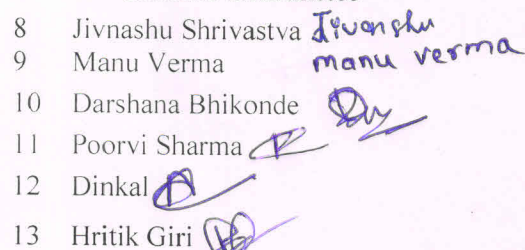 8 Jivnashu Shrivastva Jivanshu
9 Manu Verma manu verma
10 Darshana Bhikonde
11 Poorvi Sharma
12 Dinkal
13 Hritik Giri